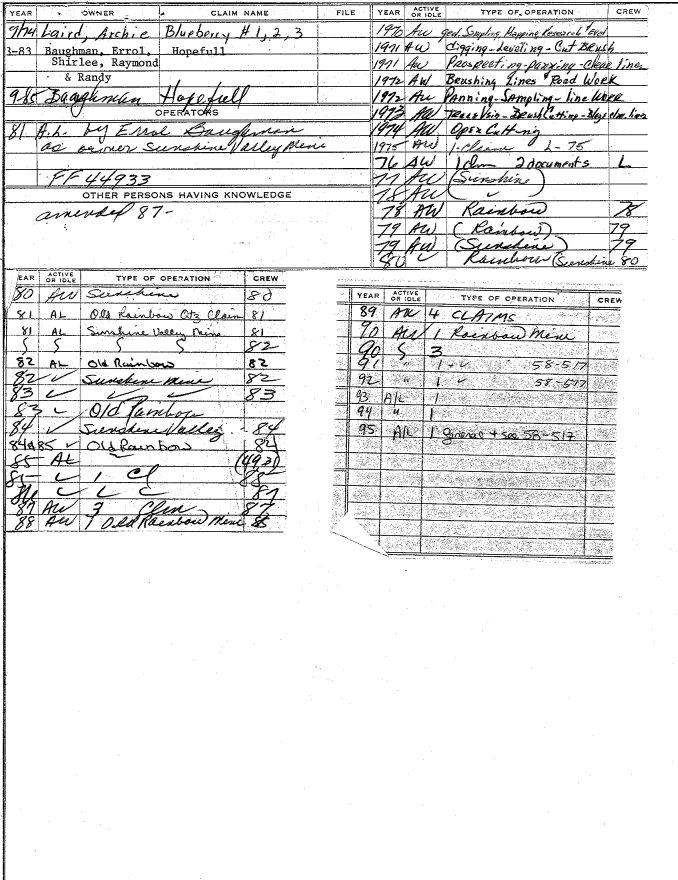 YEAR OWNER CLAIM NAME FILE
9/74 Laird, Archie Blueberry # 1, 2, 3
3-83 Baughman, Errol, Hopefull
Shirlee, Raymond
& Randy
9-85 Baughman Hopefull
OPERATORS
81 A.L. by Errol Baughman
as owner Sunshine Valley Mine
FF 44933
OTHER PERSONS HAVING KNOWLEDGE
amended 87-
YEAR ACTIVE OR IDLE TYPE OF OPERATION CREW
1970 AW Geol. Sampling Mapping Research
1971 AW digging - Leveling - Cut Brush
1971 AW Prospecting - panning - clear lines
1972 AW Brushing Lines & Road Work
1972 AW Panning - Sampling - line Work
1973 AW - Brush Cutting -
1974 AW Open Cutting
1975 AW 1-Claim L-75
76 AW 1 clm 2 documents L
77 AW (Sunshine)
78 AW
78 AW Rainbow 78
79 AW (Rainbow) 79
79 AW (Sunshine) 79
80 ✓ Rainbow (Sunshine 80
EAR ACTIVE OR IDLE TYPE OF OPERATION CREW
80 AW Sunshine 80
81 AL Old Rainbow Qtz Claim 81
81 AL Sunshine Valley Mine 81
82
82 AL Old Rainbow 82
82 ✓ Sunshine Mine 82
83 ✓ ✓ ✓ 83
83 ✓ Old Rainbow
84 ✓ Sunshine Valley - 84
84&85 ✓ Old Rainbow 84
85 AL (493)
✓ 1 Cl
87
87 AW 3 Clm 87
88 AW 1 Old Rainbow Mine 88
YEAR ACTIVE OR IDLE TYPE OF OPERATION CREW
89 AW 4 CLAIMS
90 AW 1 Rainbow Mine
90 3
91 " 1 58-517
92 " 1 58-517
93 A/L 1
94 " 1
95 A/L 1 general + see 58-517